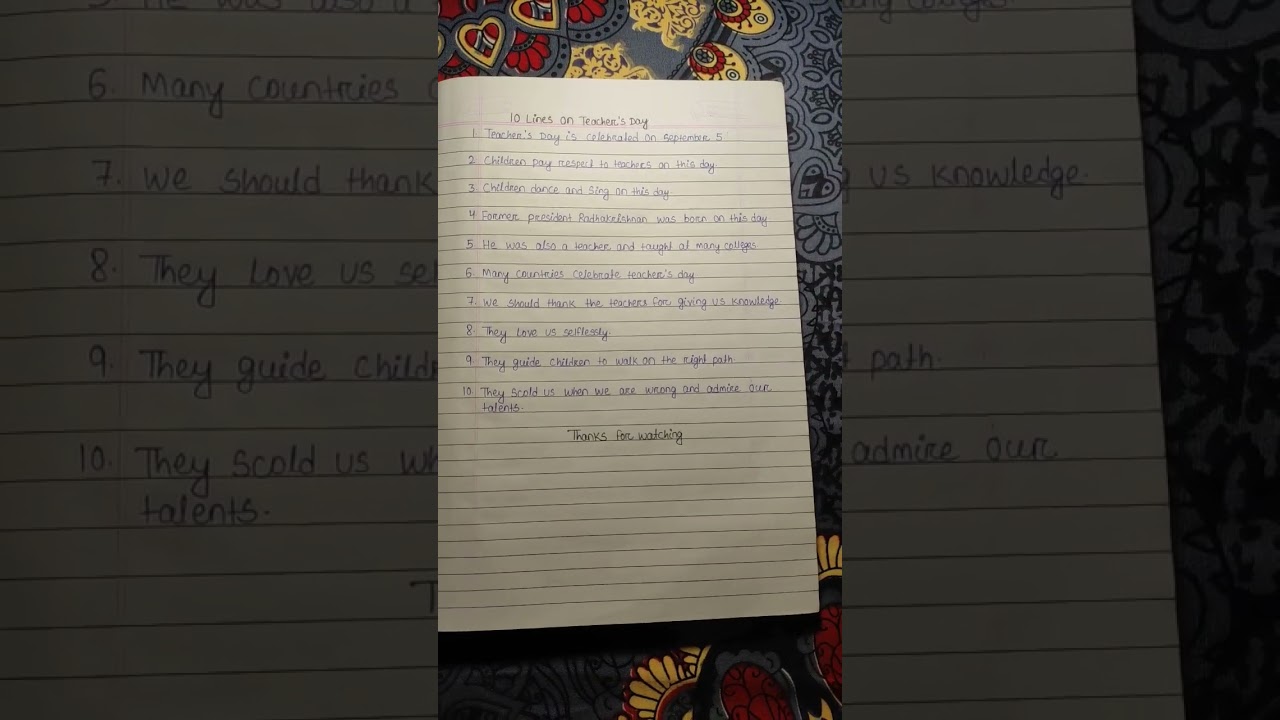 10 Lines on Teacher's Day
1. Teacher's Day is celebrated on september 5
2. Children pay respect to teachers on this day.
3. Children dance and sing on this day.
4. Former president Radhakrishnan was born on this day
5. He was also a teacher and taught at many colleges
6. Many countries celebrate teacher's day
7. We should thank the teachers for giving us knowledge.
8. They love us selflessly.
9. They guide children to walk on the right path.
10. They scold us when we are wrong and admire our
talents.
Thanks for watching